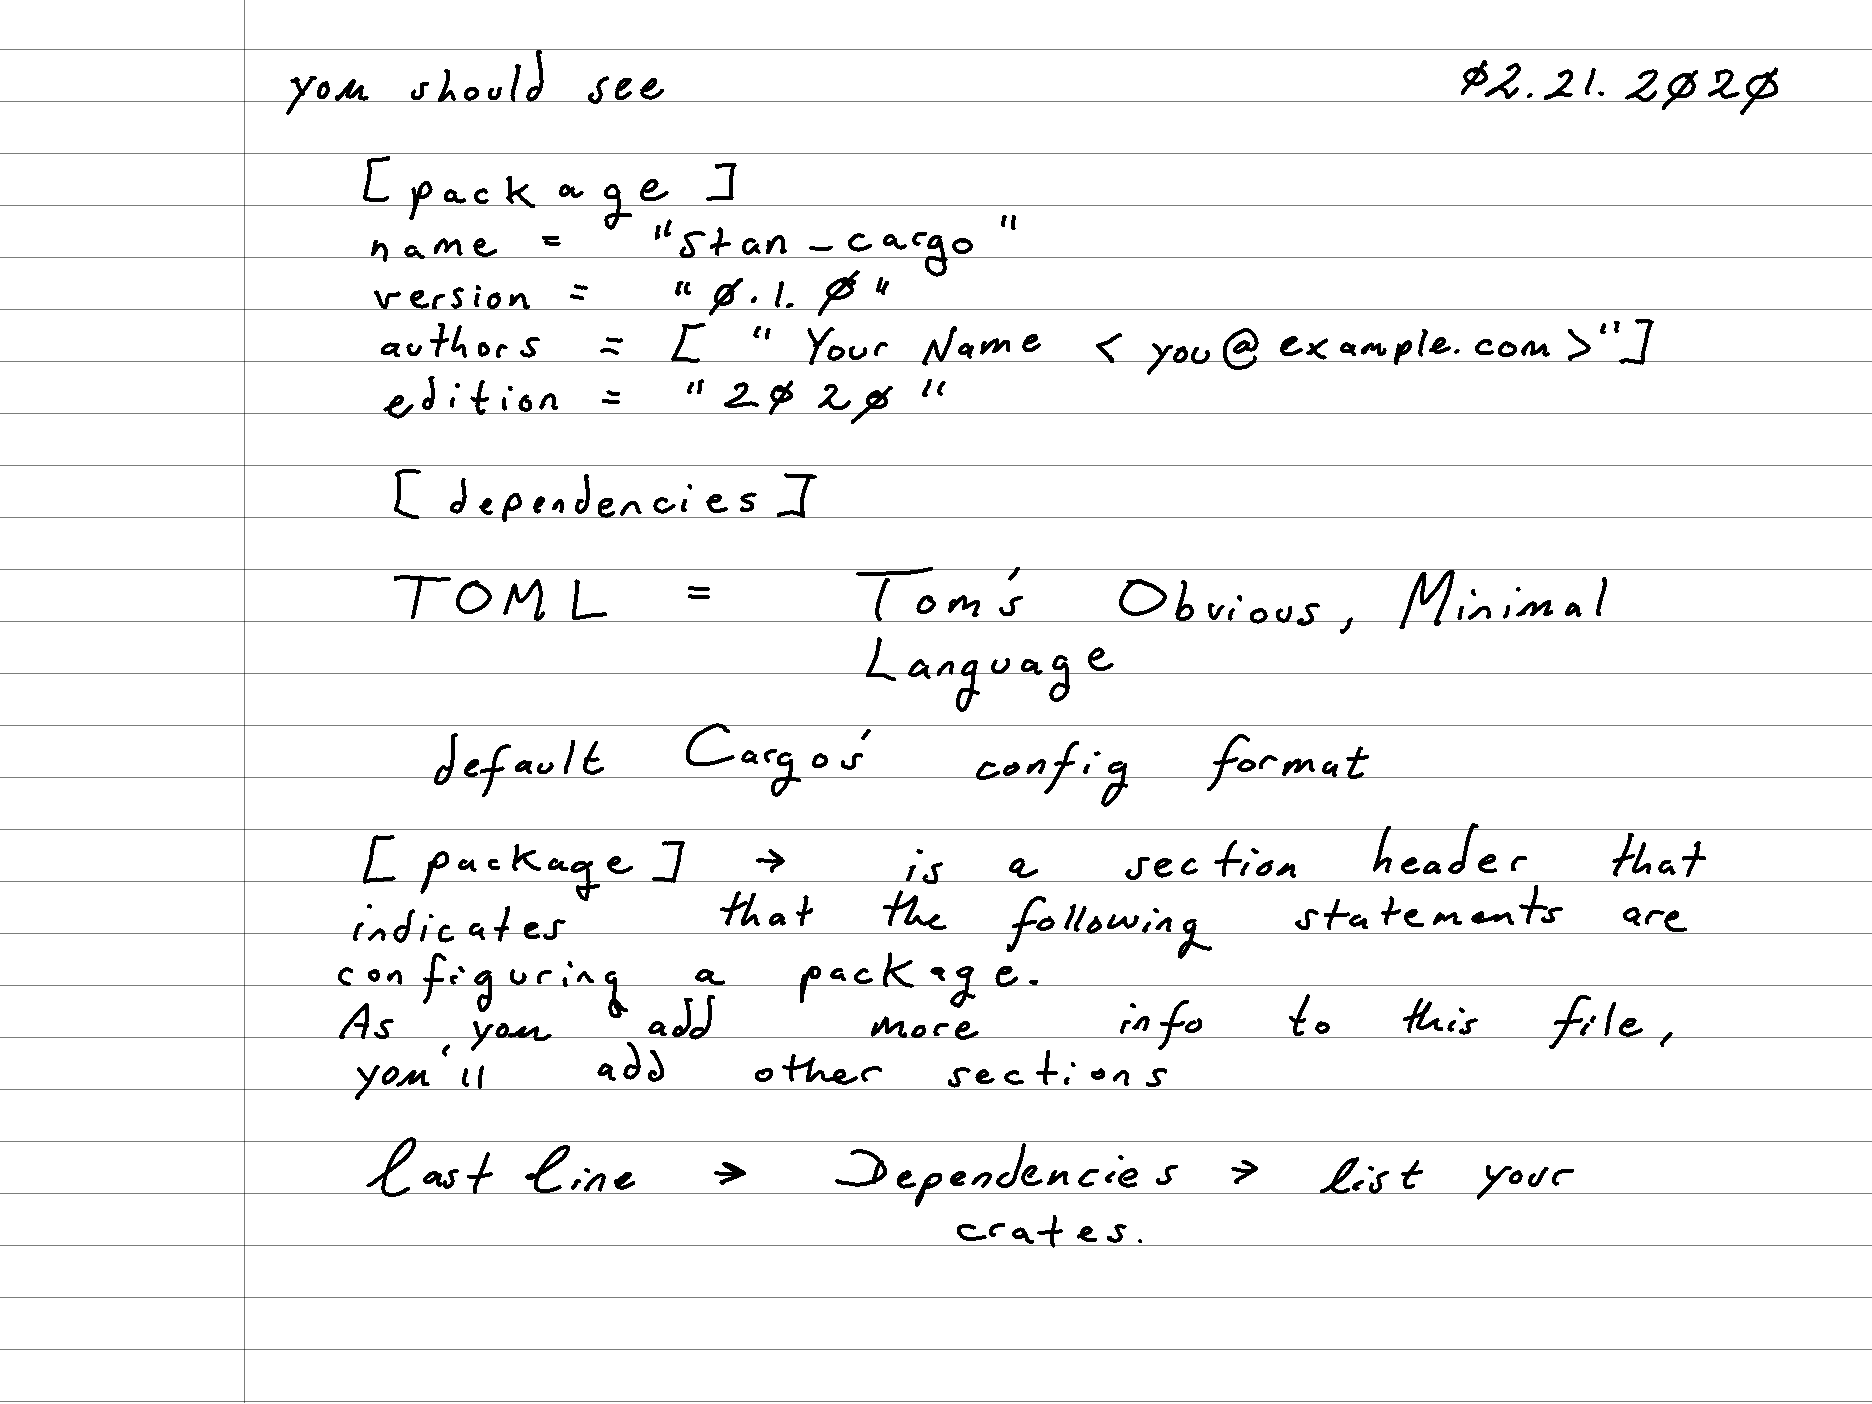 you should see 02.21.2020
[package]
name = "stan-cargo"
version = "0.1.0"
authors = [ "Your Name <you@example.com>"]
edition = "2020"
[dependencies]
TOML = Tom's Obvious, Minimal
Language
default Cargo's config format
[package] → is a section header that
indicates that the following statements are
configuring a package.
As you add more info to this file,
you'll add other sections
last line → Dependencies → list your
crates.